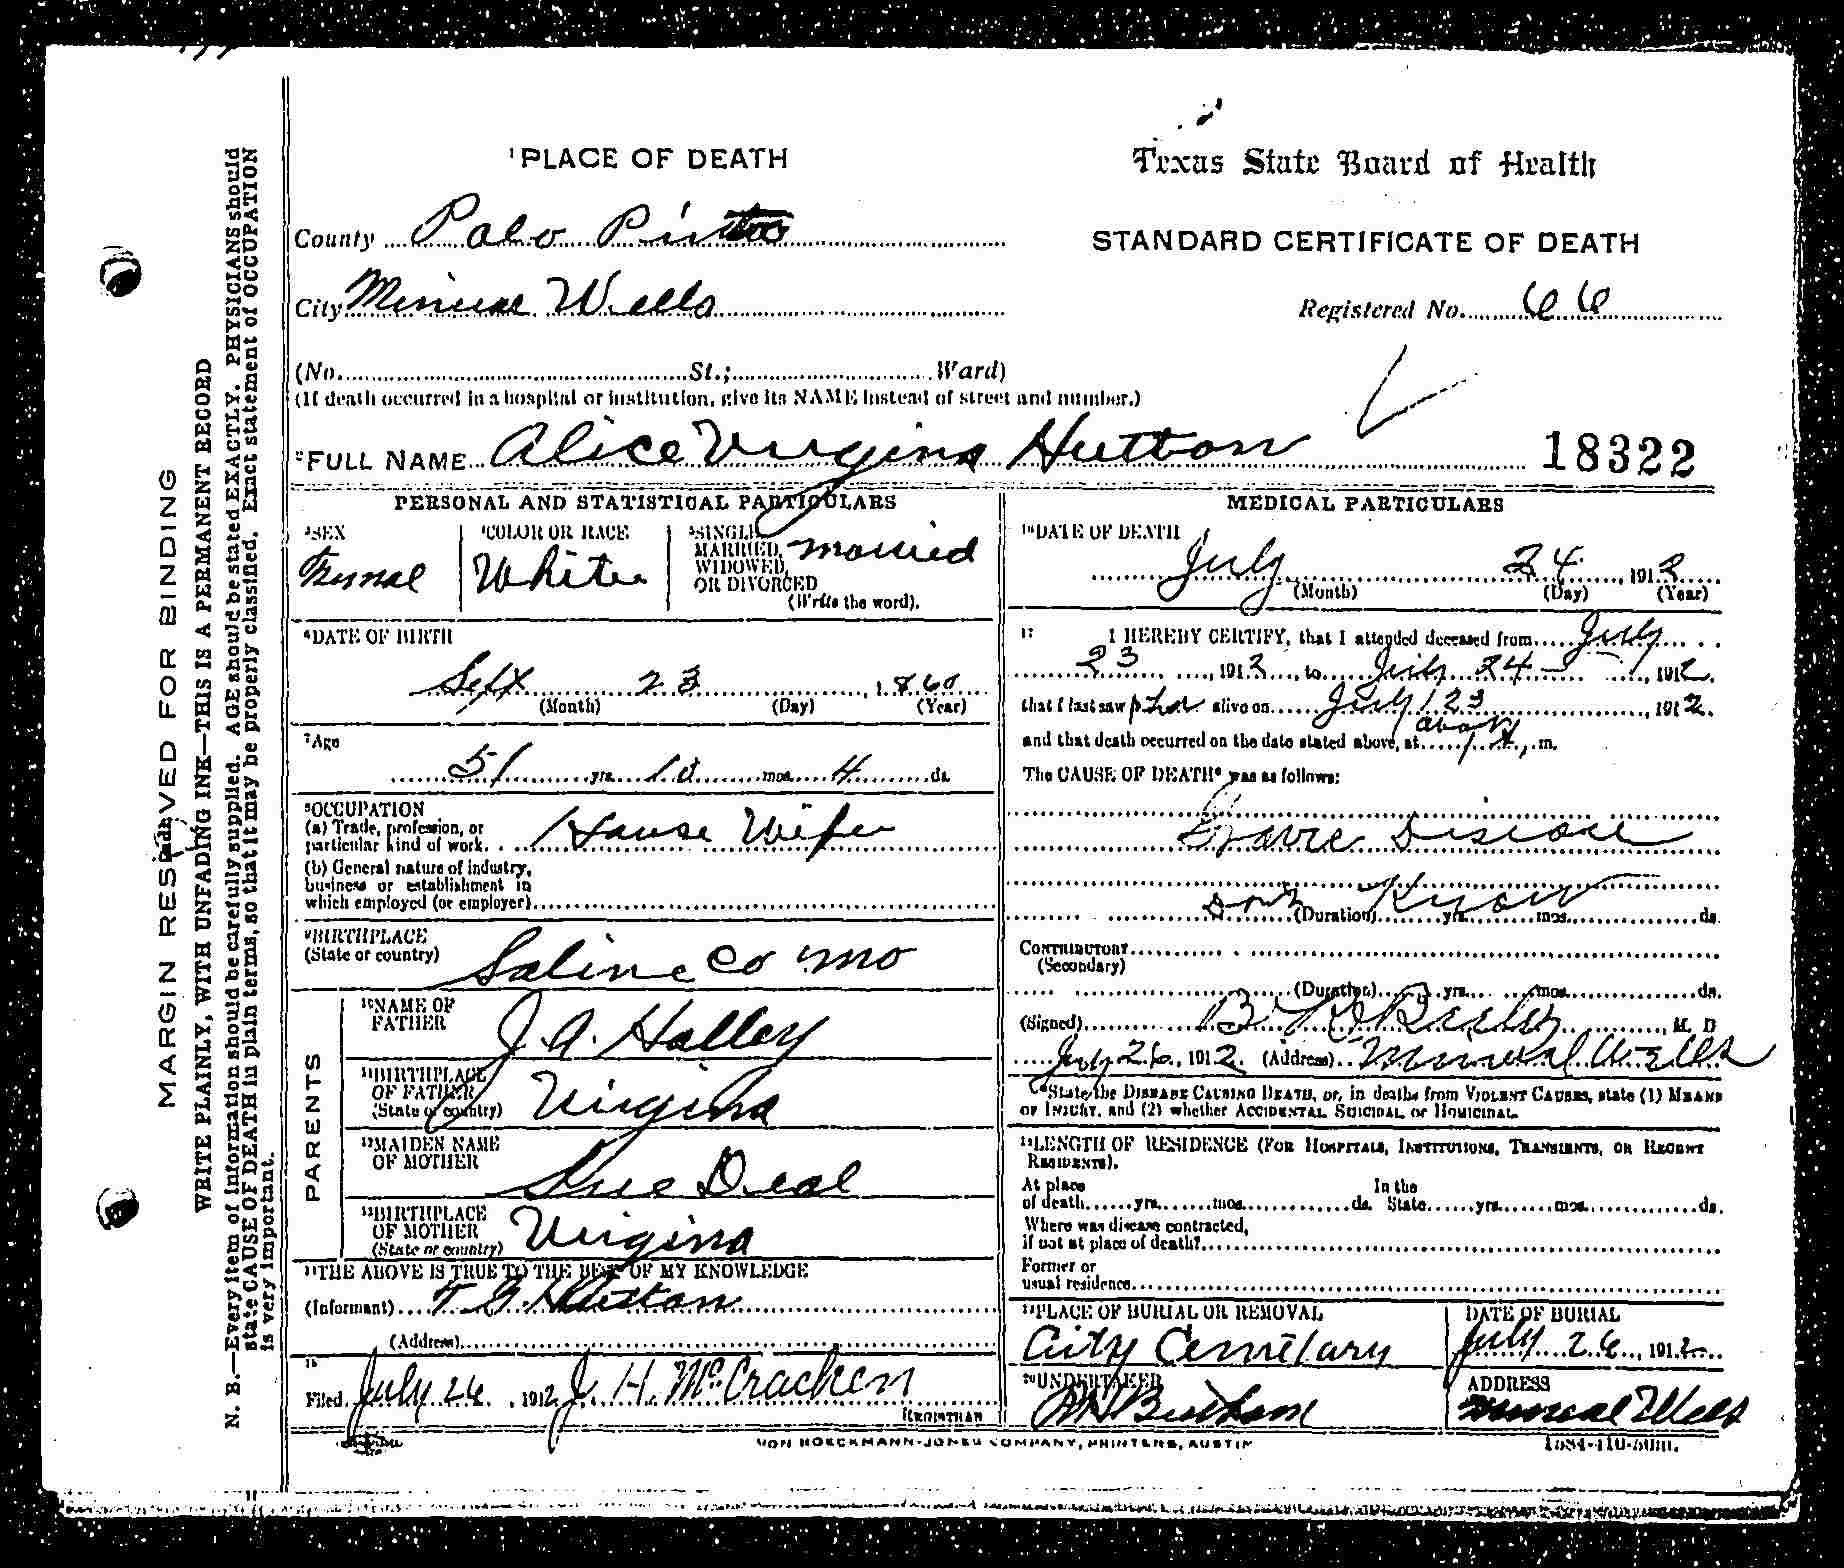 ¹PLACE OF DEATH
Texas State Board of Health
County Palo Pinto
STANDARD CERTIFICATE OF DEATH
City Mineral Wells
Registered No. 66
(No. St.; Ward)
(If death occurred in a hospital or institution, give its NAME instead of street and number.)
²FULL NAME Alice Virginia Hutton
18322
PERSONAL AND STATISTICAL PARTICULARS
³SEX
Femal
⁴COLOR OR RACE
White
⁵SINGLE
MARRIED,
WIDOWED,
OR DIVORCED
(Write the word).
married
⁶DATE OF BIRTH
Sept 23, 1860
(Month) (Day) (Year)
⁷Age
51 yrs. 10 mos. 4 ds.
⁸OCCUPATION
(a) Trade, profession, or
particular kind of work. House Wife
(b) General nature of industry,
business or establishment in
which employed (or employer)
⁹BIRTHPLACE
(State or country) Saline Co Mo
PARENTS
¹⁰NAME OF
FATHER J. A. Halley
¹¹BIRTHPLACE
OF FATHER
(State or country) Virgina
¹²MAIDEN NAME
OF MOTHER Sue Deal
¹³BIRTHPLACE
OF MOTHER
(State or country) Virgina
¹⁴THE ABOVE IS TRUE TO THE BEST OF MY KNOWLEDGE
(Informant) T. G. Hutton
(Address)
¹⁵
Filed July 26, 1912 J. H. McCracken
REGISTRAR
MEDICAL PARTICULARS
¹⁶DATE OF DEATH
July 24, 1912
(Month) (Day) (Year)
¹⁷ I HEREBY CERTIFY, that I attended deceased from July
23, 1912, to July 24, 1912.
that I last saw alive on July 23, 1912.
about
and that death occurred on the date stated above, at 1 A. m.
The CAUSE OF DEATH* was as follows:
Disease
dont Know
(Duration) yrs. mos. ds.
CONTRIBUTORY
(Secondary)
(Duration) yrs. mos. ds.
(Signed) B. R. , M. D
July 26, 1912. (Address) Mineral Wells
*State the DISEASE CAUSING DEATH, or, in deaths from VIOLENT CAUSES, state (1) MEANS
OF INJURY, and (2) whether ACCIDENTAL SUICIDAL or HOMICIDAL.
¹⁸LENGTH OF RESIDENCE (FOR HOSPITALS, INSTITUTIONS, TRANSIENTS, OR RECENT
RESIDENTS).
At place In the
of death yrs. mos. ds. State yrs. mos. ds.
Where was disease contracted,
if not at place of death?
Former or
usual residence
¹⁹PLACE OF BURIAL OR REMOVAL
City Cemetary
DATE OF BURIAL
July 26, 1912
²⁰UNDERTAKER
ADDRESS
Mineral Wells
VON BOECKMANN-JONES COMPANY, PRINTERS, AUSTIN
1584-410-50m.
MARGIN RESERVED FOR BINDING
WRITE PLAINLY, WITH UNFADING INK—THIS IS A PERMANENT RECORD
N. B.—Every item of information should be carefully supplied. AGE should be stated EXACTLY. PHYSICIANS should
state CAUSE OF DEATH in plain terms, so that it may be properly classified. Exact statement of OCCUPATION
is very important.